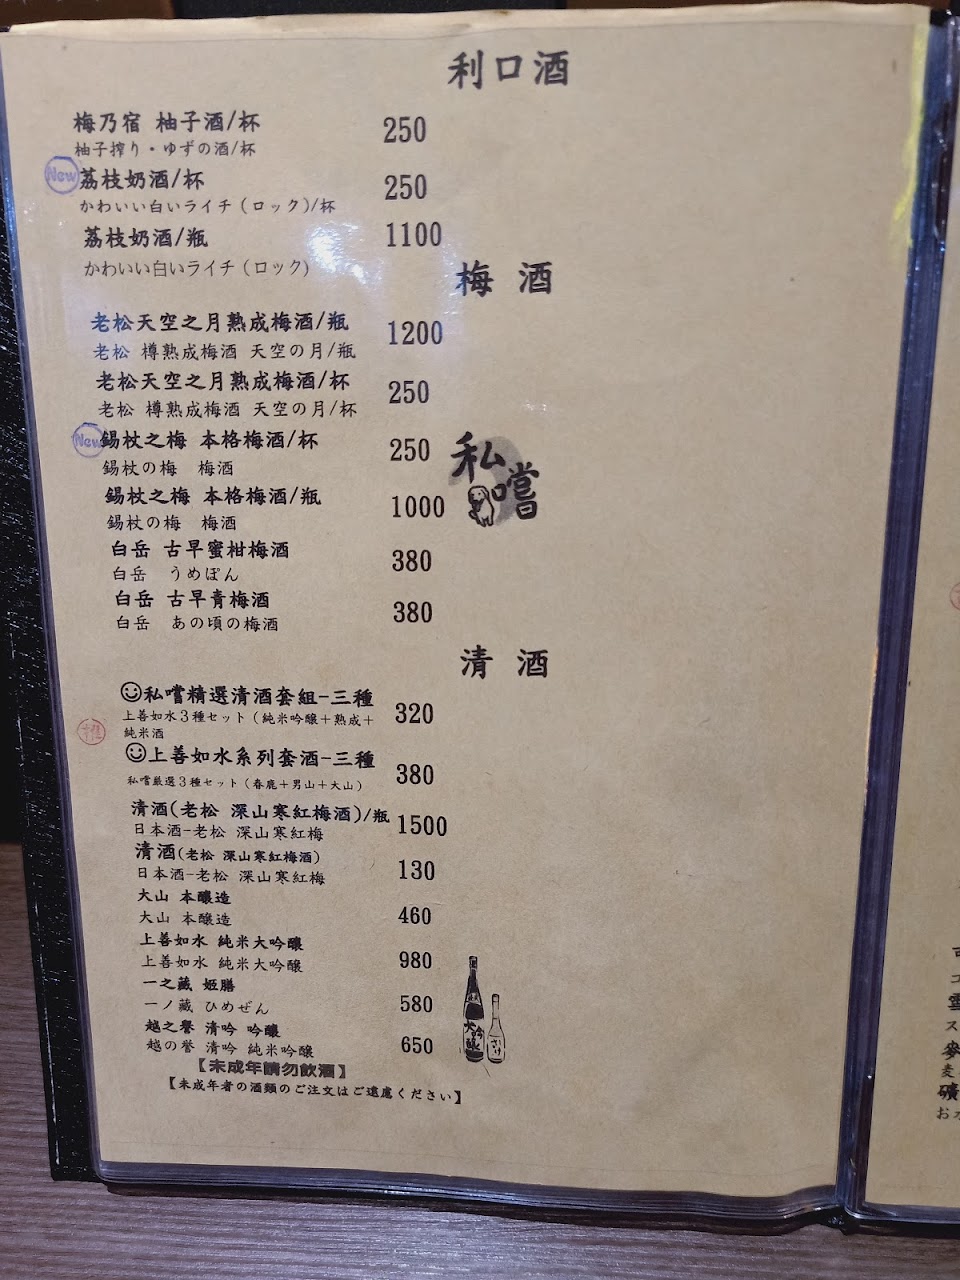 利口酒
梅乃宿 柚子酒/杯 250
柚子搾り・ゆずの酒/杯
New 荔枝奶酒/杯 250
かわいい白いライチ(ロック)/杯
荔枝奶酒/瓶 1100
かわいい白いライチ(ロック)
梅 酒
老松天空之月熟成梅酒/瓶 1200
老松 樽熟成梅酒 天空の月/瓶
老松天空之月熟成梅酒/杯 250
老松 樽熟成梅酒 天空の月/杯
New 錫杖之梅 本格梅酒/杯 250
錫杖の梅 梅酒
私嚐
錫杖之梅 本格梅酒/瓶 1000
錫杖の梅 梅酒
白岳 古早蜜柑梅酒 380
白岳 うめぽん
白岳 古早青梅酒 380
白岳 あの頃の梅酒
清 酒
私嚐精選清酒套組-三種 320
上善如水3種セット(純米吟醸+熟成+
純米酒
推
上善如水系列套酒-三種 380
私嚐厳選3種セット(春鹿+男山+大山)
清酒(老松 深山寒紅梅酒)/瓶 1500
日本酒-老松 深山寒紅梅
清酒(老松 深山寒紅梅酒) 130
日本酒-老松 深山寒紅梅
大山 本釀造 460
大山 本醸造
上善如水 純米大吟釀 980
上善如水 純米大吟醸
一之藏 姬膳 580
一ノ蔵 ひめぜん
越之譽 清吟 吟釀 650
越の誉 清吟 純米吟醸
大吟醸
さけ
【未成年請勿飲酒】
【未成年者の酒類のご注文はご遠慮ください】
コ
ス
麥
麦
礦
お水